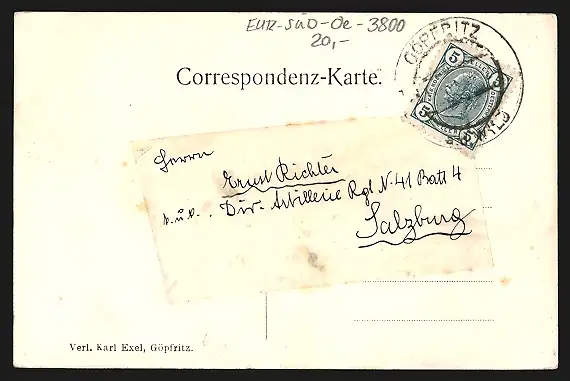 EUR-SÜD-Oe-3800
20,-
GÖPFRITZ
5 5
5 5
Correspondenz-Karte.
Herrn
Ernst Richter
k.u.k. Div. Artillerie Rgt N. 41 Batt 4
Salzburg
Verl. Karl Exel, Göpfritz.